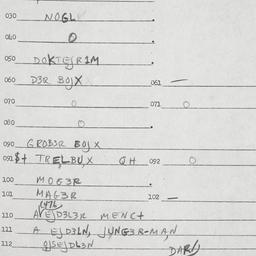 030 NOGL
040 O
050 DOKTEJR1M
060 D3R BOJX 061 —
070 O 071 O
080 O
090 GROB3R BOJX
091 $+ TRELBUX OH 092 O
100 MOG3R
101 MAG3R 102 —
110 MENC+
111 A EJD3LN, JUNG3R-MAN
112 DARJ